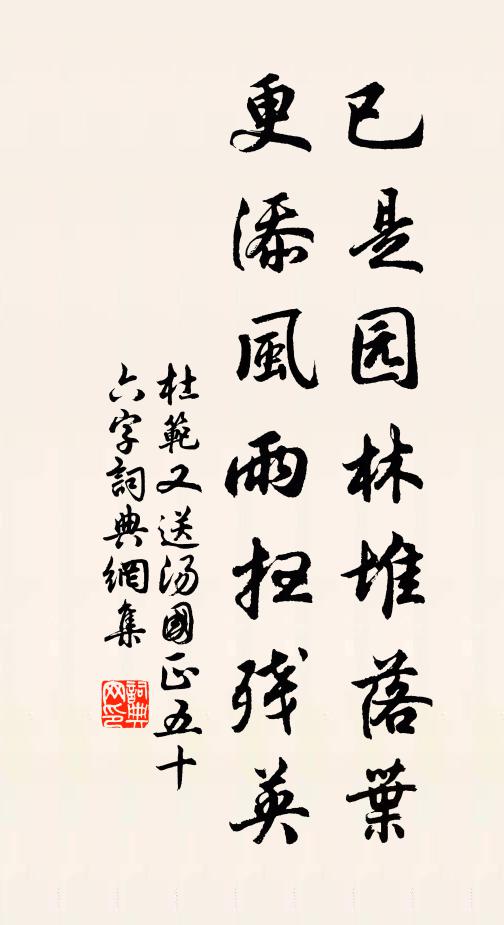 已是园林堆落葉
更添風雨扫残英
杜範又送湯國正五十
六字詞典網集
詞典
网印